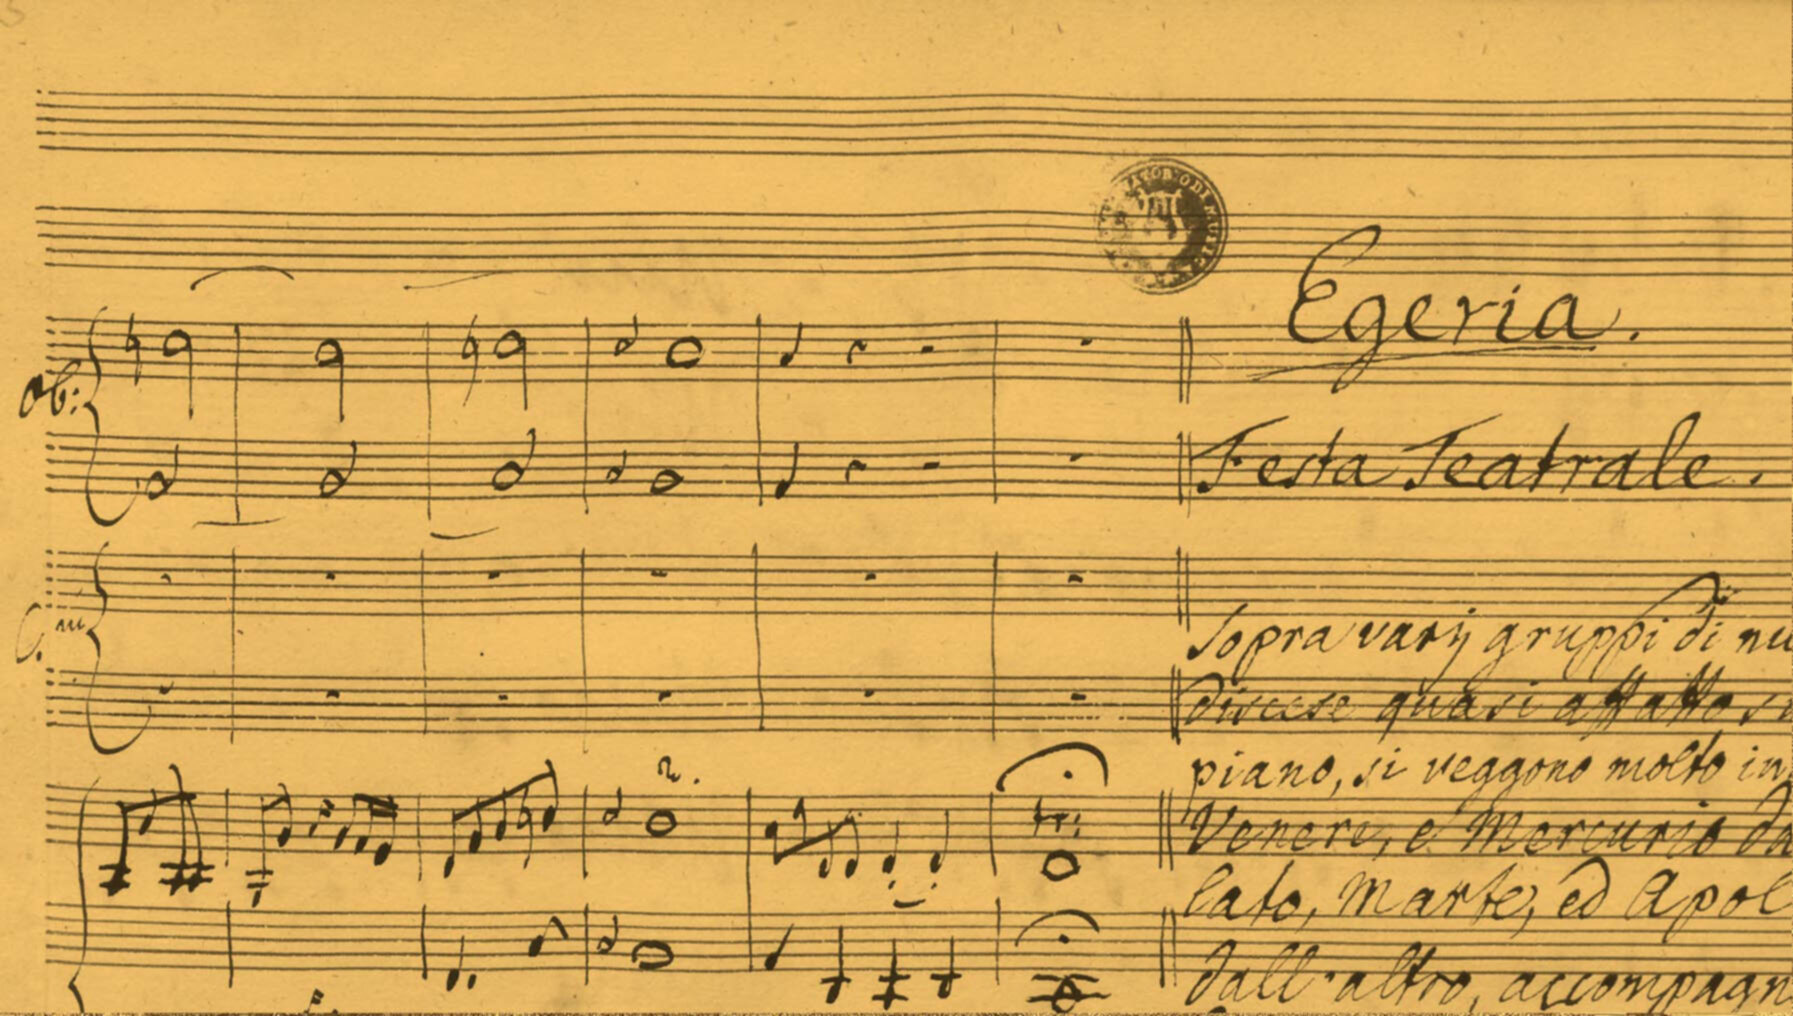 Egeria.
Ob:
Festa Teatrale.
Sopra varij gruppi di nu
discese quasi affatto su
piano, si veggono molto in
Venere, e Mercurio da
lato, Marte, ed Apol
dall'altro, accompagn